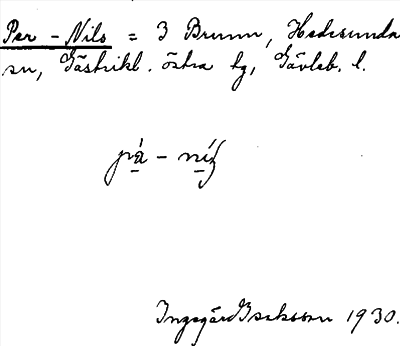 Per - Nils = 3 Brunn, Hedesunda
sn, Gästrikl. östra tg, Gävleb. l.
pá - níʃ
Ingegärd Isaksson 1930.